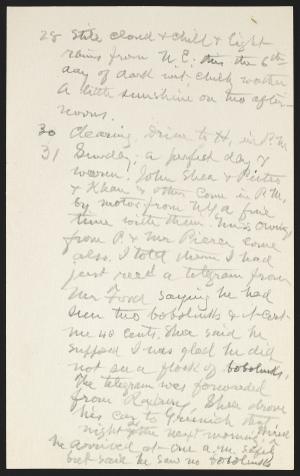 28 Still cloud & chill & light
rains from N.E; this the 6th
day of dark wet, chilly weather
A little sunshine on two after-
noons.
30 Clearing. Drive to H, in P.M.
31 Sunday; a perfect day &
warm. John Shea & Pictus
& Khan & other come in P.M.
by motor from N.Y. a fine
time with them. Miss
from P. & Mrs Pierce come
also. I told them I had
just recd a telegram from
Mr Ford saying he had
seen two bobolinks & it cost
me 48 cents. Shea said he
supposed I was glad he did
not see a flock of bobolinks.
The telegram was forwarded
from Roxbury. Shea drove
his car to Grenich that
night & the next morning hired
he arrived at one a.m.
but said he saw no bobolinks